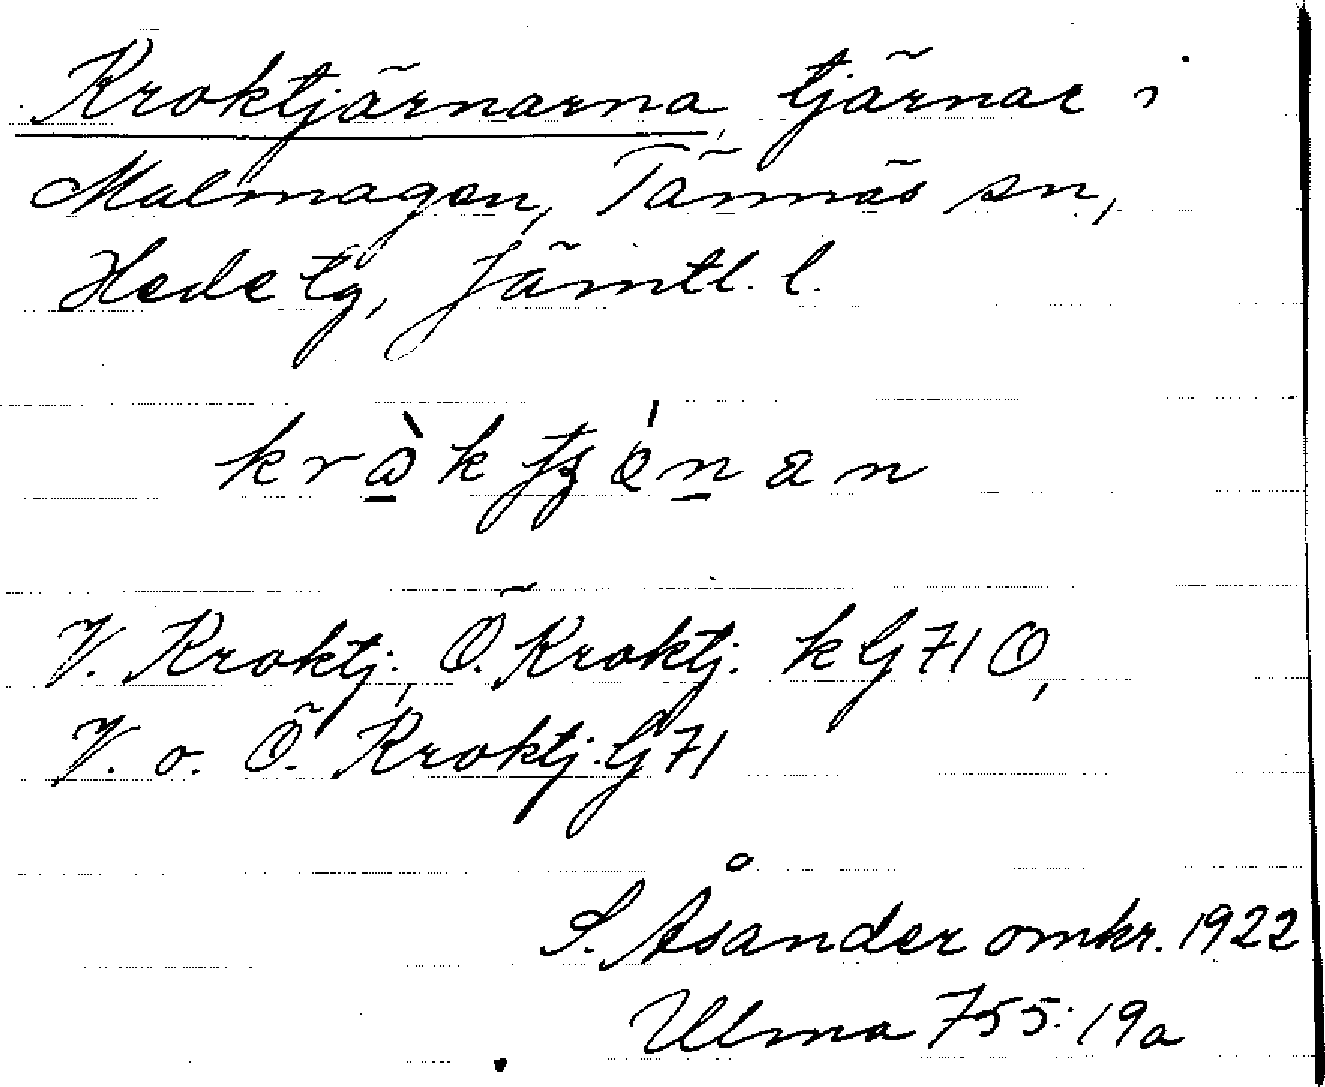 Kroktjärnarna, tjärnar i
Malmagen, Tännäs sn,
Hede tg, Jämtl. l.
V. Kroktj., Ö. Kroktj. k G 71 O,
V. o. Ö. Kroktj. G 71
S. Åsander omkr. 1922
Ulma 755:19a